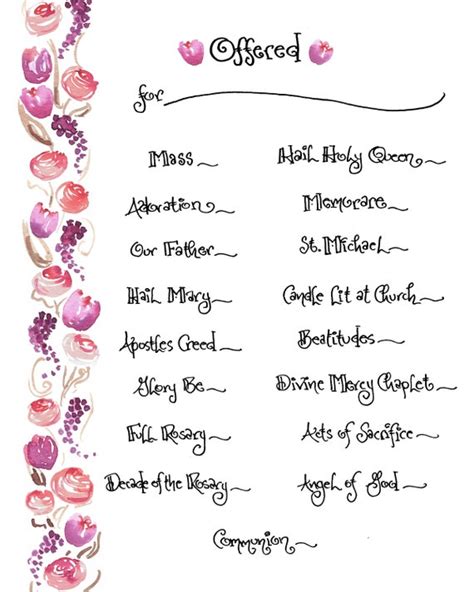 Offered
for
Mass
Hail Holy Queen
Adoration
Memorare
Our Father
St. Michael
Hail Mary
Candle Lit at Church
Apostles Creed
Beatitudes
Glory Be
Divine Mercy Chaplet
Full Rosary
Acts of Sacrifice
Decade of the Rosary
Angel of God
Communion